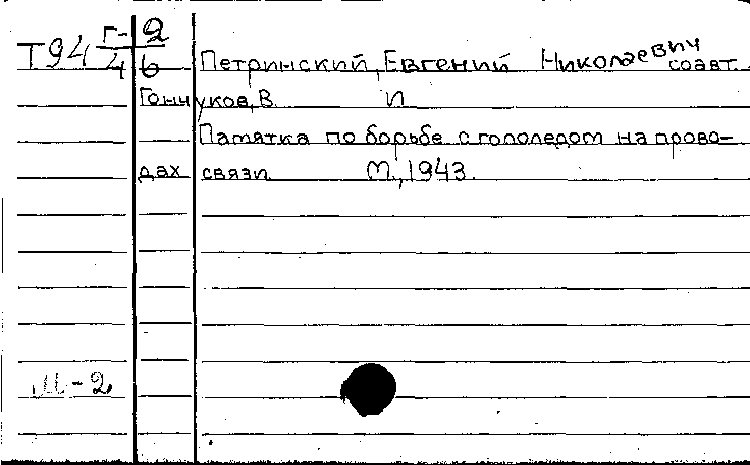 Т94 Г-2
4 6
Петринский, Евгений Николаевич
соавт.
Гончуков, В. П
Памятка по борьбе с гололедом на прово-
дах связи. М., 1943.
М-2